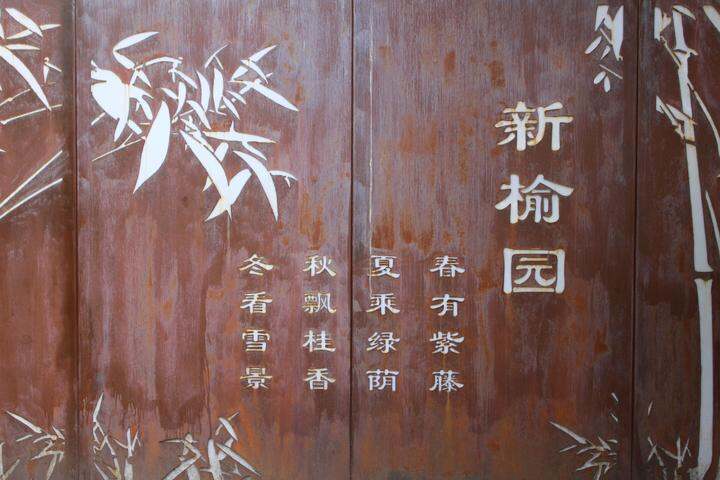 新榆园
春有紫藤
夏乘绿荫
秋飘桂香
冬看雪景